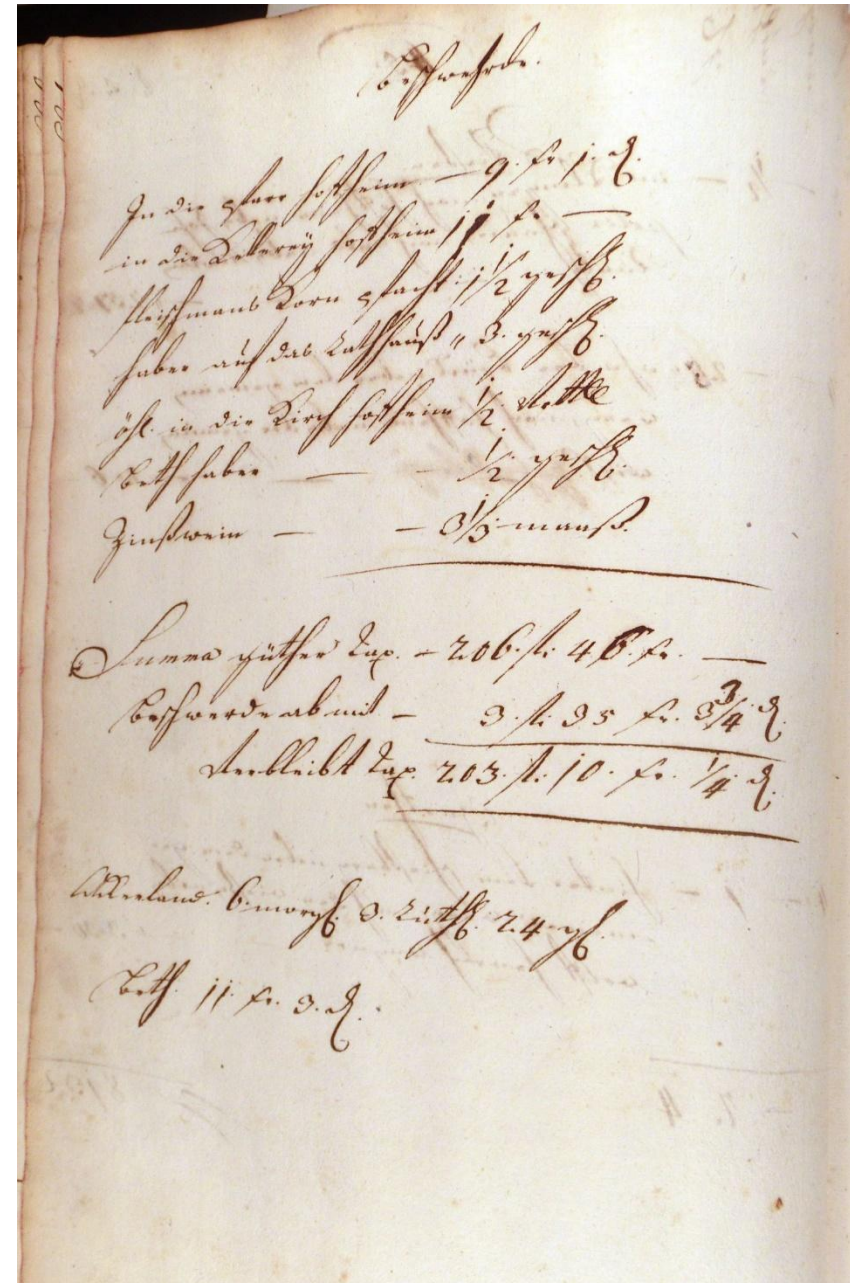 Beschwehrde.
In die pfarr hoffheim — 9. xr. 1. d.
in die Kellerey hoffheim 11 xr —
fleischmans Korn pfacht 1 1/2 gesch.
haber auf das Rathhauß „ 3. gesch.
öhl in die Kirch hoffheim 1/2
Beth haber — - 1/2 gesch.
Zinßwein — — 3 1/3 maaß.
Summa güther tax. — 206. fl. 46. xr. —
Beschwerde ab mit — 3. fl. 35 xr. 3 3/4 d.
Verbleibt tax. 203. fl. 10. xr. 1/4 d.
Ackerland. 6. morg. 3. 24.
Beth. 11 xr. 3. d.